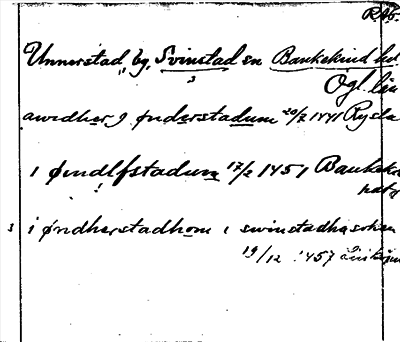 RAp.
Unnerstad by, Svinstad sn Bankekind hd
Ögl. län
awidher J ønderstadum 20/2 1441 Rysta
1 øndlfstadum 17/2 1451 Bankeki
nata
3 i øndherstadhom i swinstadha sokn
19/12 1457 Linköpin